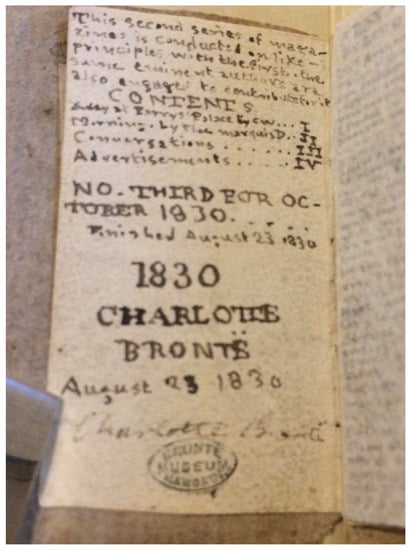 This second series of maga-
zines is conducted on like-
principles with the first. the
same eminent authors are
also engaged to contribute for it
CONTENTS
A day at Parrys Palace by CW... I
Morning. by the marquis D.. II
Conversations....... III
Advertisements..... IV
NO. THIRD FOR OC-
TOBER 1830.....
Finished August 23 1830
1830
CHARLOTTE
BRONTË
August 23 1830
Charlotte Brontë
BRONTE
MUSEUM
HAWORTH